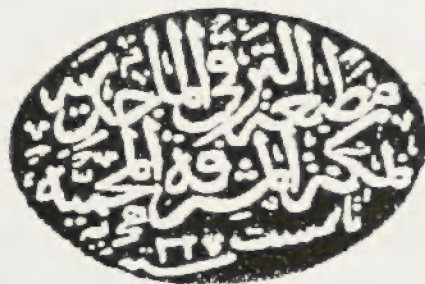 مطبعة الترقي الماجدية
بمكة المشرفة المحمية
تاسست سنة ١٣٢٧ هجرية